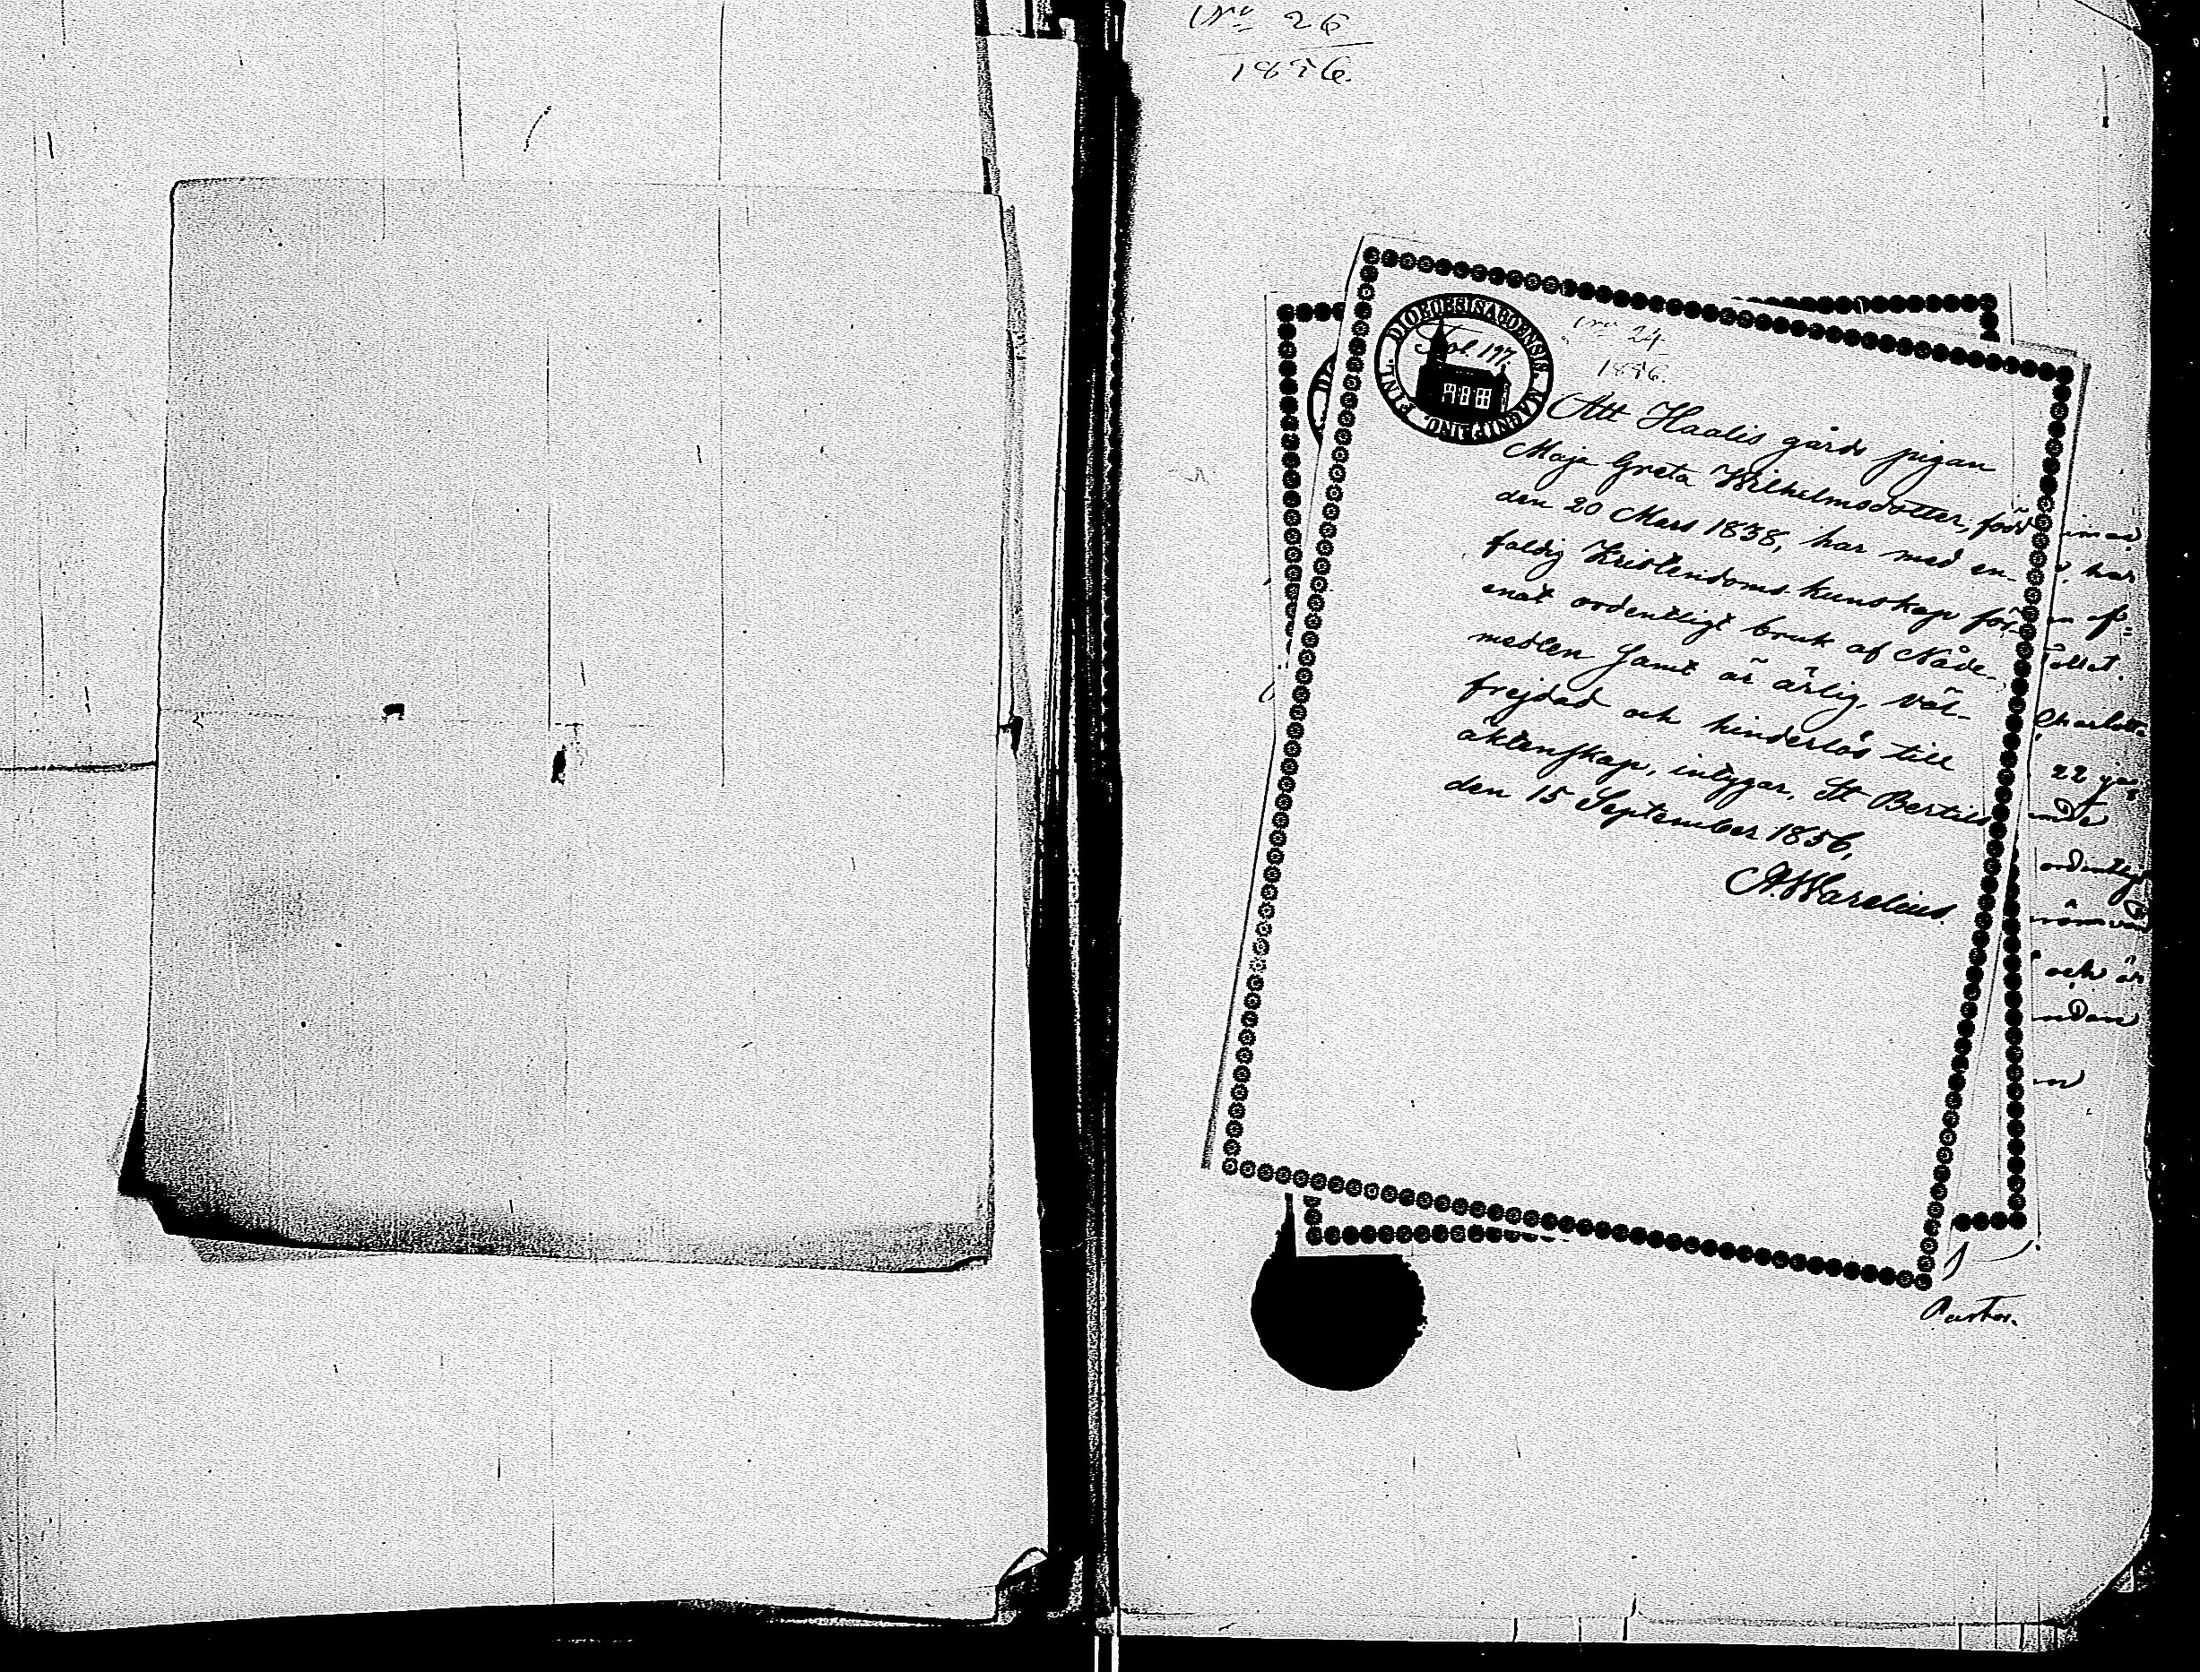 Nro 26
1856.
DIOECESIS ABOENSIS. MAGNI PRINC. FINL.
Fol. 197.
Nro 24
1856.
Att Haalis gårds pigan
Maja Greta Wilhelmsdotter, född
den 20 Mars 1838, har med en-
faldig Kristendoms kunskap för-
enat ordentligt bruk af Nåde-
medlen samt är ärlig, väl-
frejdad och hinderlös till
äktenskap, intygar. St Bertils
den 15 September 1856,
A. Warelius.
har
Charlotta
22
ordentligt
och är
Pastor.